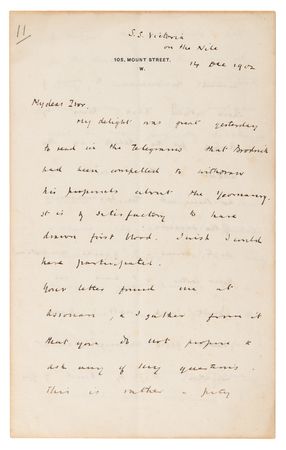 11
S.S. Victoria
on the Nile
105, MOUNT STREET,
W.
14 Dec 1902
My dear Ivor.
My delight was great yesterday
to read in the Telegrams that Brodrick
had been compelled to withdraw
his proposals about the Yeomanry.
It is satisfactory to have
drawn first blood. I wish I could
have participated.
Your letter found me at
Assouan, & I gather from it
that you do not propose to
ask any of my questions.
This is rather a pity